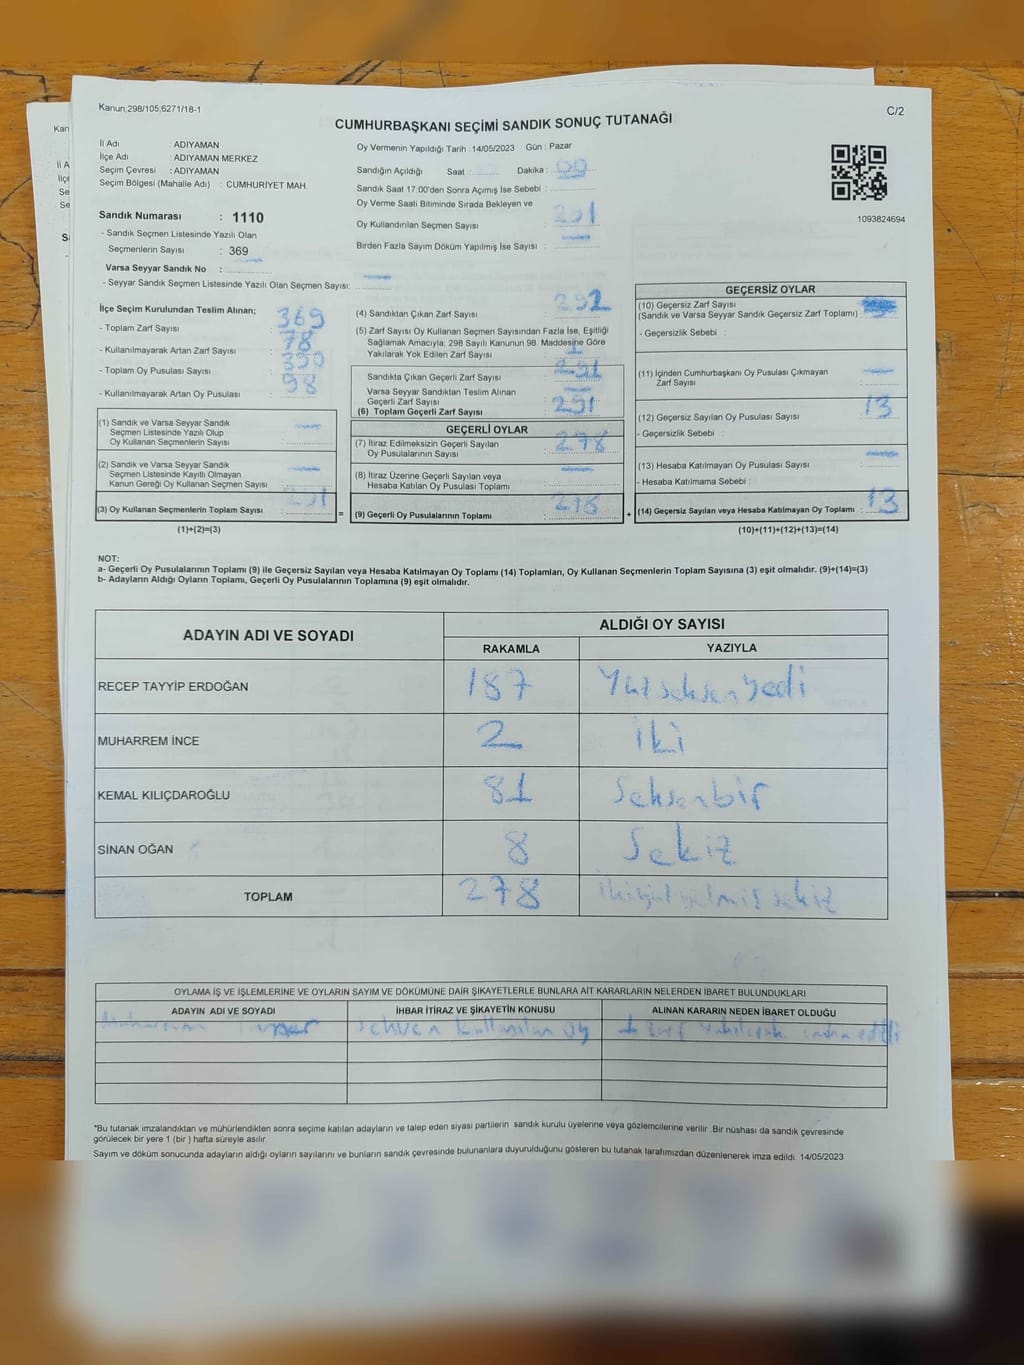 Kanun;298/105;6271/18-1
C/2
CUMHURBAŞKANI SEÇİMİ SANDIK SONUÇ TUTANAĞI
İl Adı : ADIYAMAN
İlçe Adı : ADIYAMAN MERKEZ
Seçim Çevresi : ADIYAMAN
Seçim Bölgesi (Mahalle Adı) : CUMHURİYET MAH.
Sandık Numarası : 1110
- Sandık Seçmen Listesinde Yazılı Olan
Seçmenlerin Sayısı : 369
Varsa Seyyar Sandık No :
- Seyyar Sandık Seçmen Listesinde Yazılı Olan Seçmen Sayısı:
Oy Vermenin Yapıldığı Tarih :14/05/2023 Gün : Pazar
Sandığın Açıldığı Saat : Dakika : 00
Sandık Saat 17:00'den Sonra Açımış İse Sebebi :
Oy Verme Saati Bitiminde Sırada Bekleyen ve
Oy Kullandırılan Seçmen Sayısı : 291
Birden Fazla Sayım Döküm Yapılmış İse Sayısı :
1093824694
İlçe Seçim Kurulundan Teslim Alınan;
- Toplam Zarf Sayısı : 369
- Kullanılmayarak Artan Zarf Sayısı : 78
- Toplam Oy Pusulası Sayısı : 390
- Kullanılmayarak Artan Oy Pusulası : 98
(1) Sandık ve Varsa Seyyar Sandık
Seçmen Listesinde Yazılı Olup
Oy Kullanan Seçmenlerin Sayısı :
(2) Sandık ve Varsa Seyyar Sandık
Seçmen Listesinde Kayıtlı Olmayan
Kanun Gereği Oy Kullanan Seçmen Sayısı :
(3) Oy Kullanan Seçmenlerin Toplam Sayısı : 291
(1)+(2)=(3)
(4) Sandıktan Çıkan Zarf Sayısı : 292
(5) Zarf Sayısı Oy Kullanan Seçmen Sayısından Fazla İse, Eşitliği
Sağlamak Amacıyla, 298 Sayılı Kanunun 98. Maddesine Göre
Yakılarak Yok Edilen Zarf Sayısı : 1
Sandıkta Çıkan Geçerli Zarf Sayısı : 291
Varsa Seyyar Sandıktan Teslim Alınan
Geçerli Zarf Sayısı :
(6) Toplam Geçerli Zarf Sayısı : 291
GEÇERLİ OYLAR
(7) İtiraz Edilmeksizin Geçerli Sayılan
Oy Pusulalarının Sayısı : 278
(8) İtiraz Üzerine Geçerli Sayılan veya
Hesaba Katılan Oy Pusulası Toplamı :
= (9) Geçerli Oy Pusulalarının Toplamı : 278
GEÇERSİZ OYLAR
(10) Geçersiz Zarf Sayısı
(Sandık ve Varsa Seyyar Sandık Geçersiz Zarf Toplamı) :
- Geçersizlik Sebebi :
(11) İçinden Cumhurbaşkanı Oy Pusulası Çıkmayan
Zarf Sayısı :
(12) Geçersiz Sayılan Oy Pusulası Sayısı : 13
- Geçersizlik Sebebi :
(13) Hesaba Katılmayan Oy Pusulası Sayısı :
- Hesaba Katılmama Sebebi :
+ (14) Geçersiz Sayılan veya Hesaba Katılmayan Oy Toplamı : 13
(10)+(11)+(12)+(13)=(14)
NOT:
a- Geçerli Oy Pusulalarının Toplamı (9) ile Geçersiz Sayılan veya Hesaba Katılmayan Oy Toplamı (14) Toplamları, Oy Kullanan Seçmenlerin Toplam Sayısına (3) eşit olmalıdır. (9)+(14)=(3)
b- Adayların Aldığı Oyların Toplamı, Geçerli Oy Pusulalarının Toplamına (9) eşit olmalıdır.
ADAYIN ADI VE SOYADI
ALDIĞI OY SAYISI
RAKAMLA YAZIYLA
RECEP TAYYİP ERDOĞAN 187 Yüzseksenyedi
MUHARREM İNCE 2 İki
KEMAL KILIÇDAROĞLU 81 Seksenbir
SİNAN OĞAN 8 Sekiz
TOPLAM 278 ikiyüzyetmişsekiz
OYLAMA İŞ VE İŞLEMLERİNE VE OYLARIN SAYIM VE DÖKÜMÜNE DAİR ŞİKAYETLERLE BUNLARA AİT KARARLARIN NELERDEN İBARET BULUNDUKLARI
ADAYIN ADI VE SOYADI İHBAR İTİRAZ VE ŞİKAYETİN KONUSU ALINAN KARARIN NEDEN İBARET OLDUĞU
Muharrem sehven kullanılan oy 1 zarf yakılarak imha edildi
*Bu tutanak imzalandıktan ve mühürlendikten sonra seçime katılan adayların ve talep eden siyasi partilerin sandık kurulu üyelerine veya gözlemcilerine verilir. Bir nüshası da sandık çevresinde
görülecek bir yere 1 (bir) hafta süreyle asılır.
Sayım ve döküm sonucunda adayların aldığı oyların sayılarını ve bunların sandık çevresinde bulunanlara duyurulduğunu gösteren bu tutanak tarafımızdan düzenlenerek imza edildi. 14/05/2023